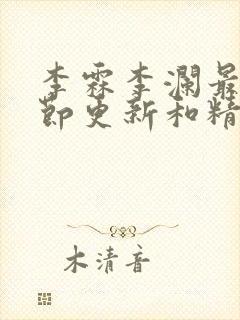 李霖李澜最
节更新和精
木清音